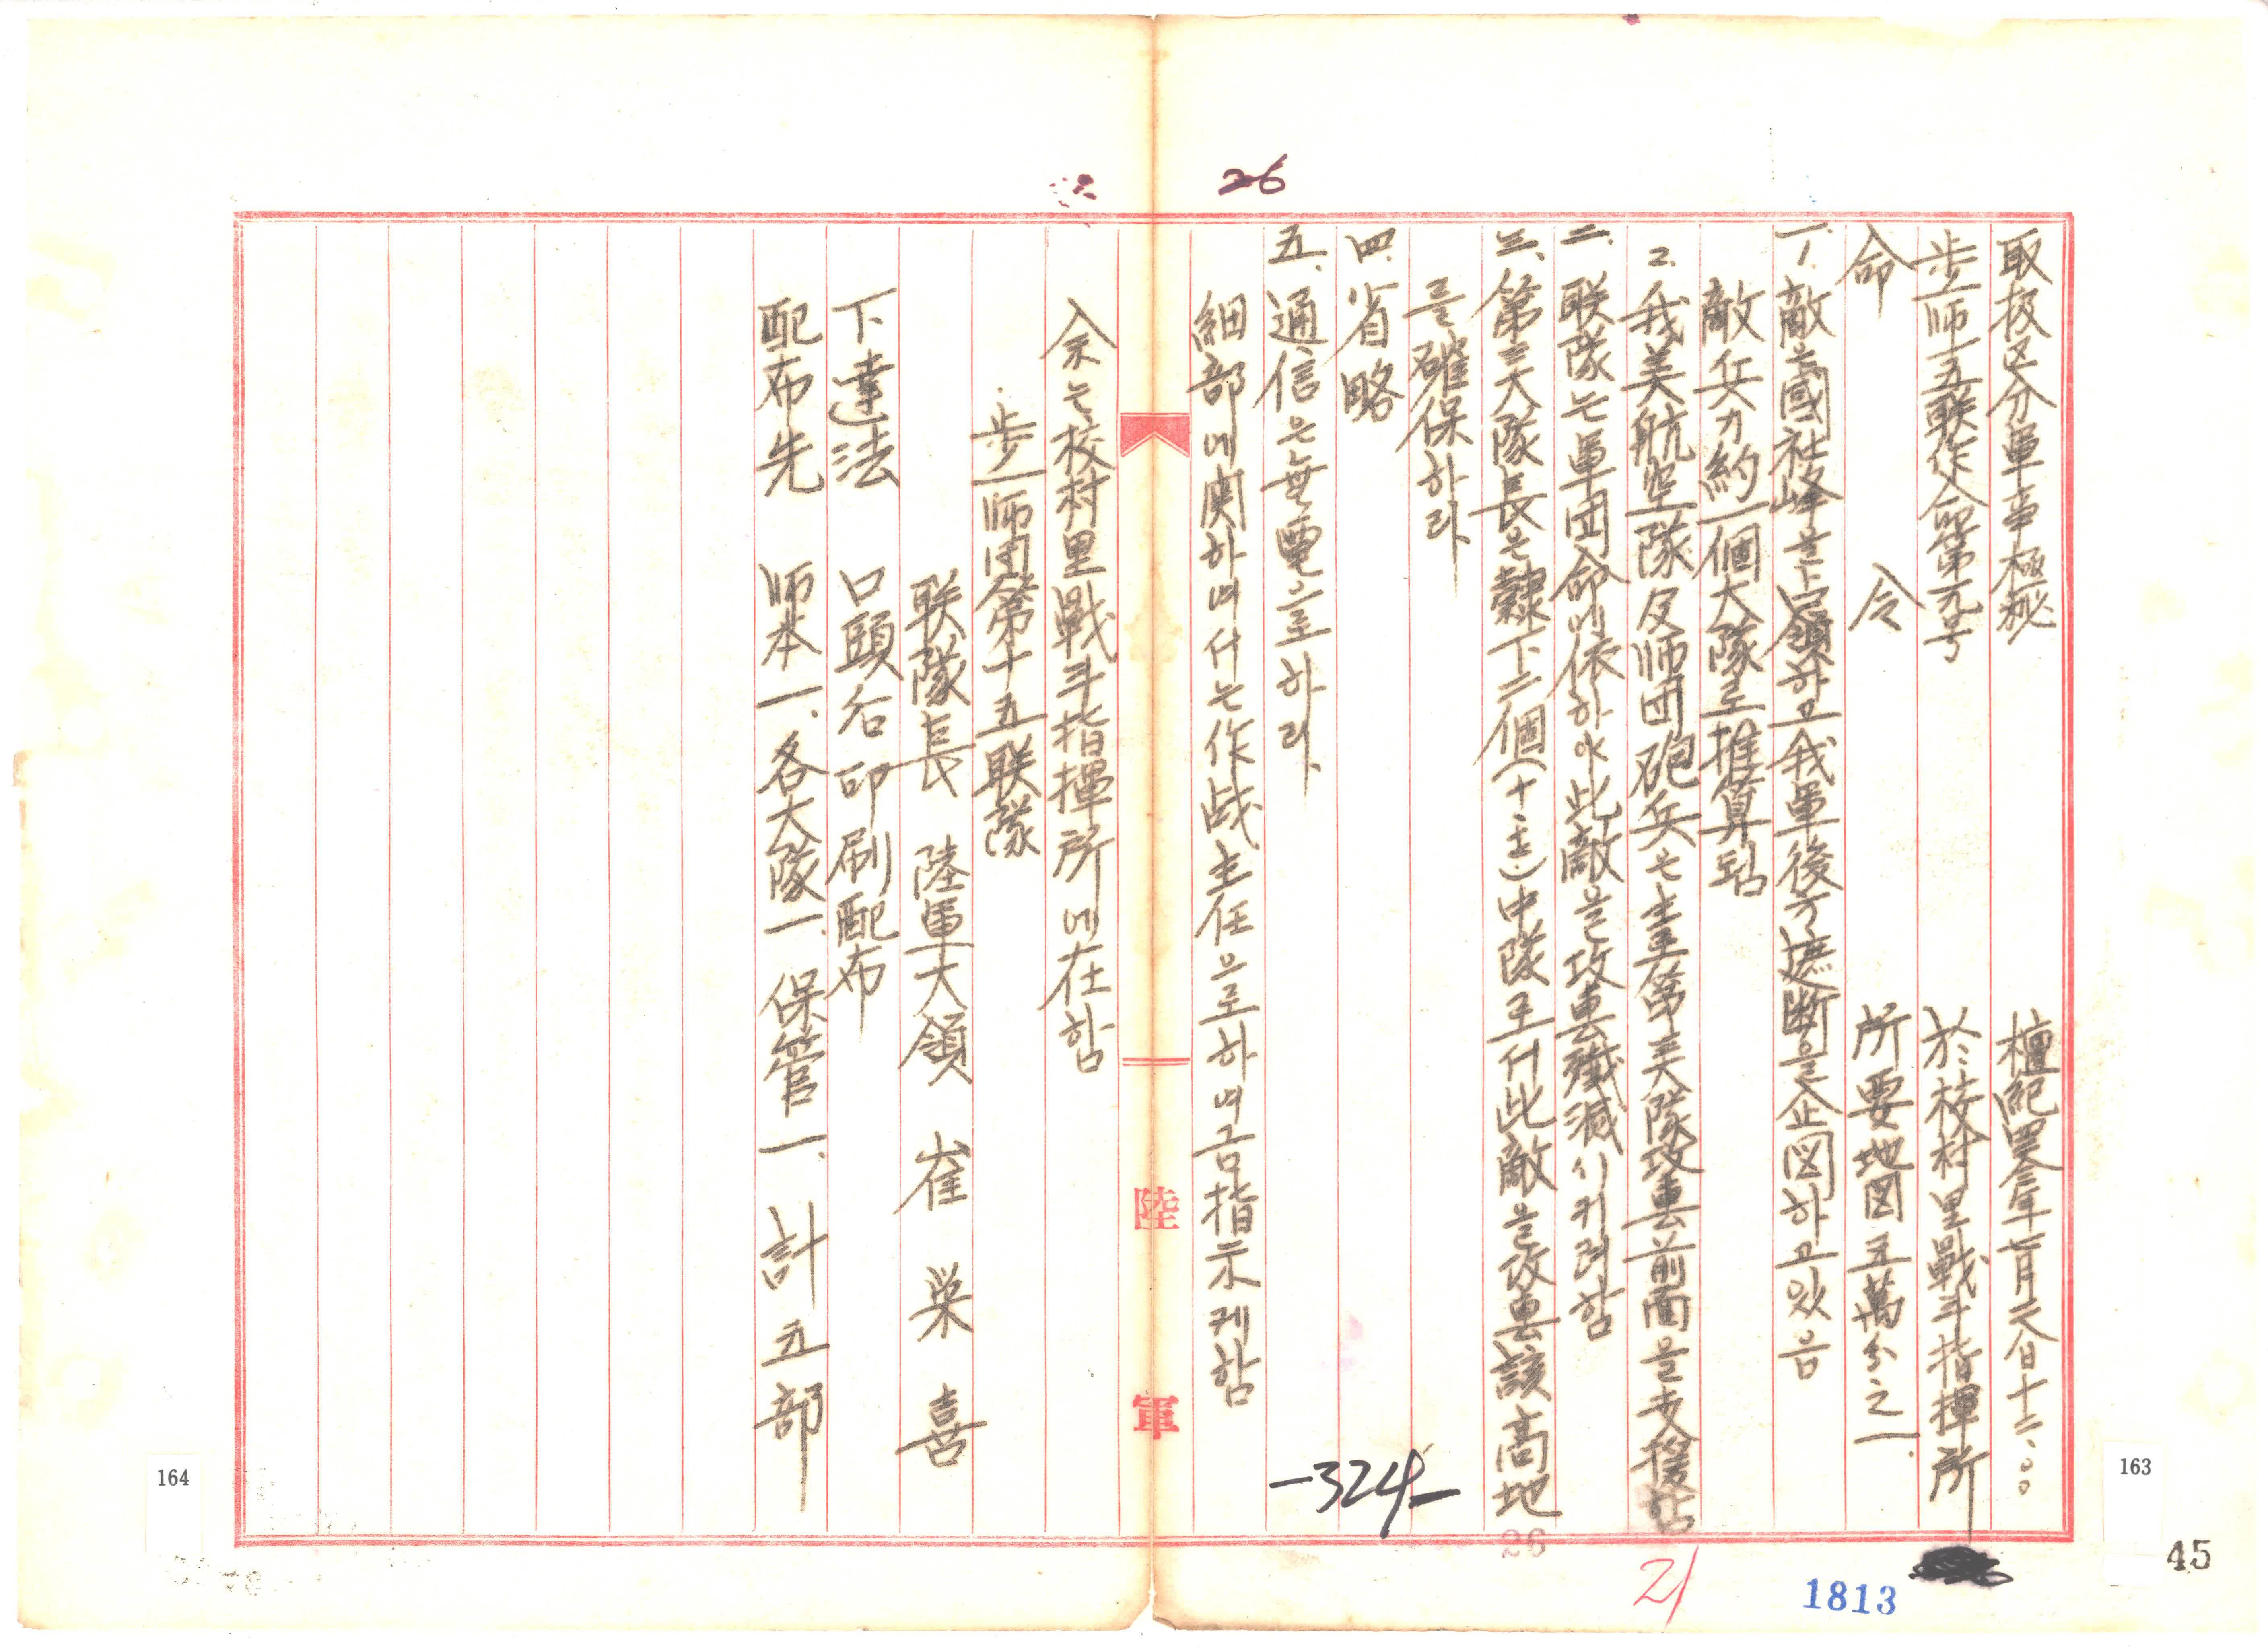 26
取扱区分軍事極秘 檀紀四二八三年七月二六日十二:〇〇
步一師一五联作命第元号 於:校村里戰斗指揮所
命 令 所要地図五萬分之一.
一.1. 敵은國社峰을占領하고我軍後方遮断을企図하고있음
敵兵力約一個大隊로推算됨
2. 我美航空隊及師団砲兵은主로第三大隊攻擊前面을支援함
二. 联隊는軍団命에依하야此敵을攻擊殲滅시키려함
三. 第三大隊長은隷下二個(十一.)中隊로서此敵을攻擊該高地
를確保하라
四. 省略
五. 通信은無電으로하라
細部에関하여서는作战主任으로하여금指示케함
余는校村里戰斗指揮所에在함
步一師団第十五联隊
联隊長 陸軍大領 崔榮喜
下達法 口頭合印刷配布
配布先 師本一.各大隊一.保管一. 計五部
陸軍
-324-
164
163
26
21
1813
45